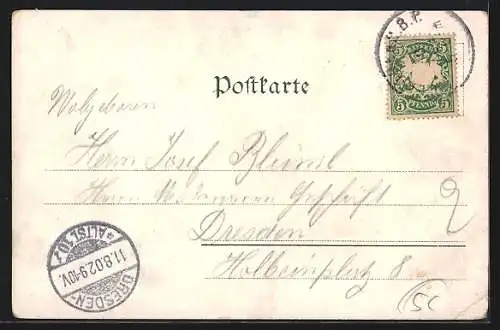 K.B.P.
E
BAYERN
5 PFENNIG 5
Postkarte
Wolgeboren
Herrn Josef Bleiml
Herren Geschäft
Dresden
Holbeinplatz 8
DRESDEN-
*ALTST.10z
11.8.02.9-10V.